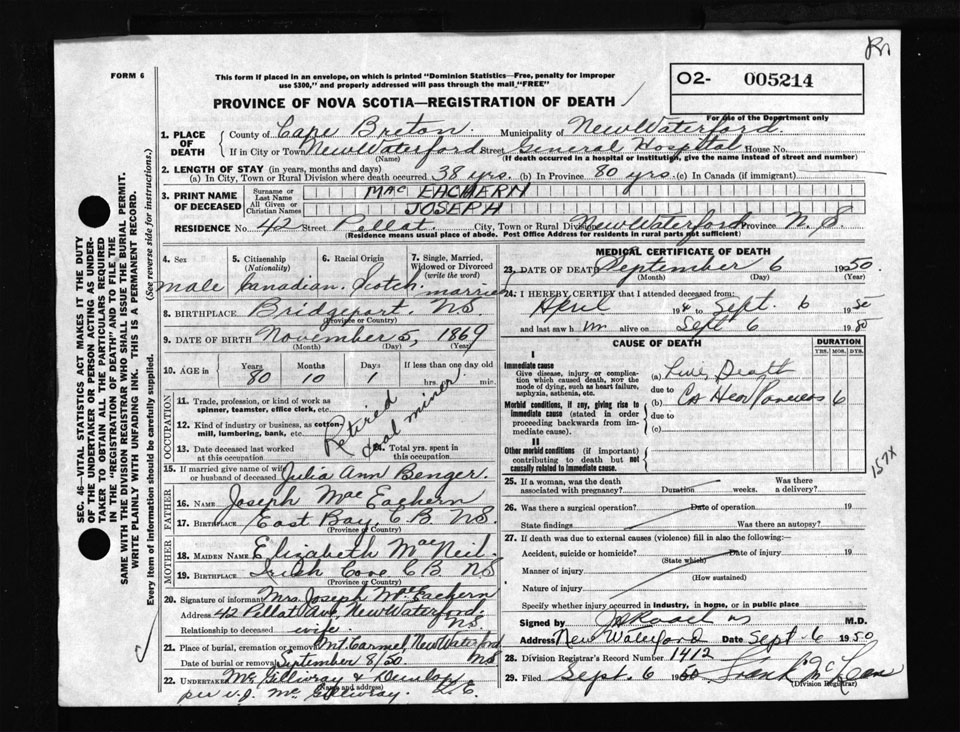 Rn
FORM 6
This form if placed in an envelope, on which is printed "Dominion Statistics—Free, penalty for improper
use $300," and properly addressed will pass through the mail "FREE"
PROVINCE OF NOVA SCOTIA—REGISTRATION OF DEATH
O2- 005214
For use of the Department only
1. PLACE OF DEATH
County of Cape Breton. Municipality of New Waterford.
If in City or Town New Waterford Street General Hospital House No.
(Name) (If death occurred in a hospital or institution, give the name instead of street and number)
2. LENGTH OF STAY (in years, months and days)
(a) In City, Town or Rural Division where death occurred 38 yrs. (b) In Province 80 yrs. (c) In Canada (if immigrant)
3. PRINT NAME OF DECEASED
Surname or Last Name MAC EACHERN
All Given or Christian Names JOSEPH
RESIDENCE No. 42 Street Pellat. City, Town or Rural Division New Waterford Province N.S.
(Residence means usual place of abode. Post Office Address for residents in rural parts not sufficient)
4. Sex male
5. Citizenship (Nationality) Canadian.
6. Racial Origin Scotch.
7. Single, Married, Widowed or Divorced (write the word) married
8. BIRTHPLACE Bridgeport. N.S.
(Province or Country)
9. DATE OF BIRTH November 5, 1869
(Month) (Day) (Year)
10. AGE in Years 80 Months 10 Days 1 If less than one day old hrs. min.
OCCUPATION
11. Trade, profession, or kind of work as spinner, teamster, office clerk, etc.
12. Kind of industry or business, as cotton mill, lumbering, bank, etc.
Retired coal miner
13. Date deceased last worked at this occupation
14. Total yrs. spent in this occupation
15. If married give name of wife or husband of deceased Julia Ann Benger.
FATHER
16. NAME Joseph Mac Eachern
17. BIRTHPLACE East Bay, C.B. N.S.
(Province or Country)
MOTHER
18. MAIDEN NAME Elizabeth MacNeil.
19. BIRTHPLACE Irish Cove C.B. NS
(Province or Country)
20. Signature of informant Mrs. Joseph McEachern
Address 42 Pellat Ave, New Waterford. N.S.
Relationship to deceased wife.
21. Place of burial, cremation or removal Mt. Carmel, New Waterford NS
Date of burial or removal September 8/50.
22. UNDERTAKER Mc Gillivray & Dunlop
(Name and address)
per Mc Gillivray.
MEDICAL CERTIFICATE OF DEATH
23. DATE OF DEATH September 6 1950.
(Month) (Day) (Year)
24. I HEREBY CERTIFY that I attended deceased from:
April 19 to Sept. 6 1950
and last saw him alive on Sept 6 1950
CAUSE OF DEATH
DURATION
YRS. MOS. DYS.
I
Immediate cause
Give disease, injury or complication which caused death, NOT the mode of dying, such as heart failure, asphyxia, asthenia, etc.
(a) Death
due to
Morbid conditions, if any, giving rise to immediate cause (stated in order proceeding backwards from immediate cause).
(b) Ca Head Pancreas 6
due to
(c)
II
Other morbid conditions (if important) contributing to death but not causally related to immediate cause.
157X
25. If a woman, was the death associated with pregnancy? Duration weeks. Was there a delivery?
26. Was there a surgical operation? Date of operation 19
State findings Was there an autopsy?
27. If death was due to external causes (violence) fill in also the following:
Accident, suicide or homicide? Date of injury 19
(State which)
Manner of injury
(How sustained)
Nature of injury
Specify whether injury occurred in industry, in home, or in public place
Signed by M.D.
Address New Waterford Date Sept. 6 1950
28. Division Registrar's Record Number 1412
29. Filed Sept. 6 1950 Frank McLean
(Division Registrar)
SEC. 46—VITAL STATISTICS ACT MAKES IT THE DUTY
OF THE UNDERTAKER OR PERSON ACTING AS UNDER-
TAKER TO OBTAIN ALL THE PARTICULARS REQUIRED
IN THE "REGISTRATION OF DEATH" AND TO FILE THE
SAME WITH THE DIVISION REGISTRAR WHO SHALL ISSUE THE BURIAL PERMIT.
WRITE PLAINLY WITH UNFADING INK. THIS IS A PERMANENT RECORD.
Every item of information should be carefully supplied. (See reverse side for instructions.)